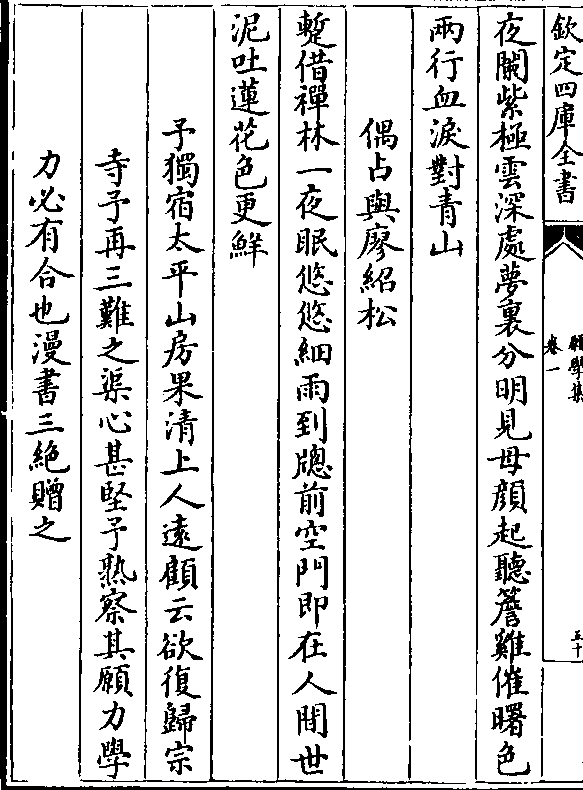 欽定四庫全書
願學集
卷一
五十
夜闌紫極雲深處夢裏分明見母顔起聽簷雞催曙色
兩行血淚對青山
偶占與廖紹松
蹔借禪林一夜眠悠悠細雨到牕前空門即在人間世
泥吐蓮花色更鮮
予獨宿太平山房果清上人遠顧云欲復歸宗
寺予再三難之渠心甚堅予熟察其願力學
力必有合也漫書三絶贈之